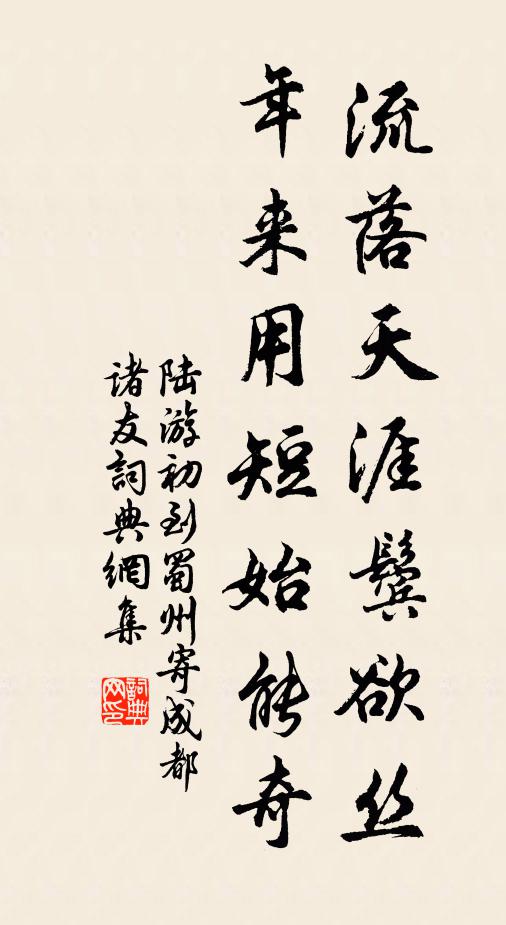 流落天涯鬓欲丝
年来用短始能奇
陆游初到蜀州寄成都
诸友詞典網集
詞典
网印